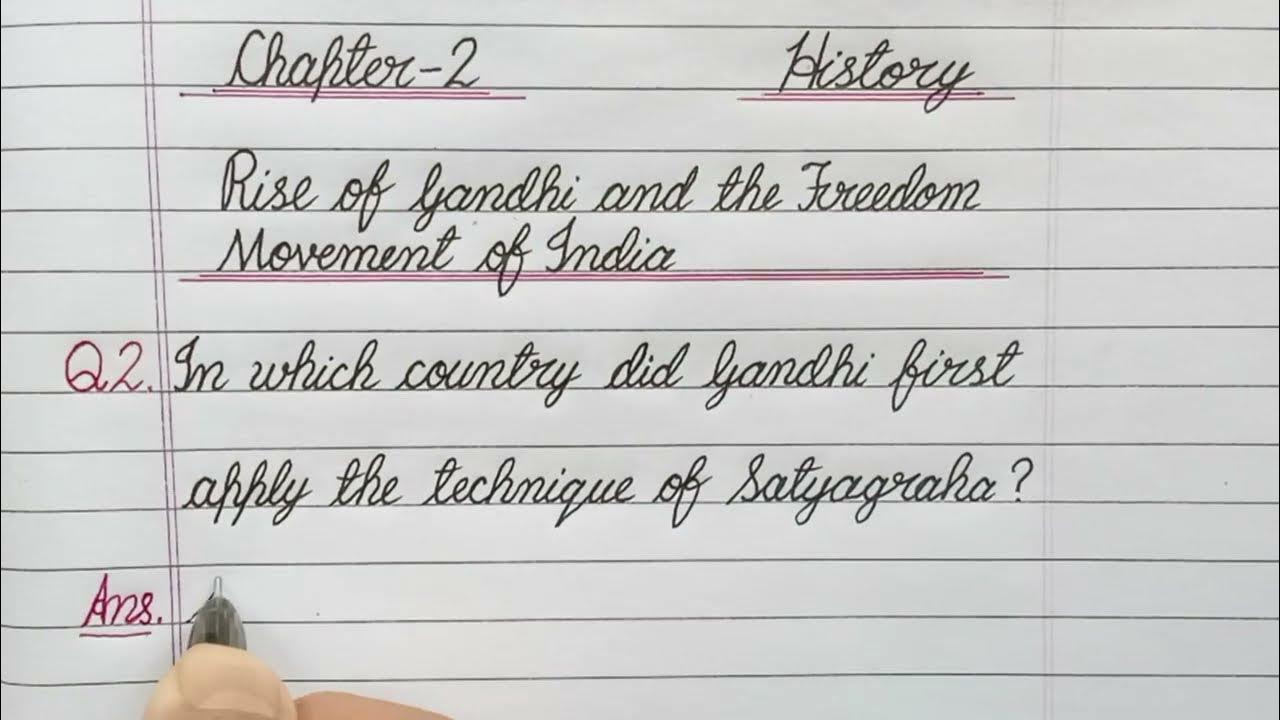 Chapter-2 History
Rise of Gandhi and the Freedom
Movement of India
Q2. In which country did Gandhi first
apply the technique of Satyagraha?
Ans.